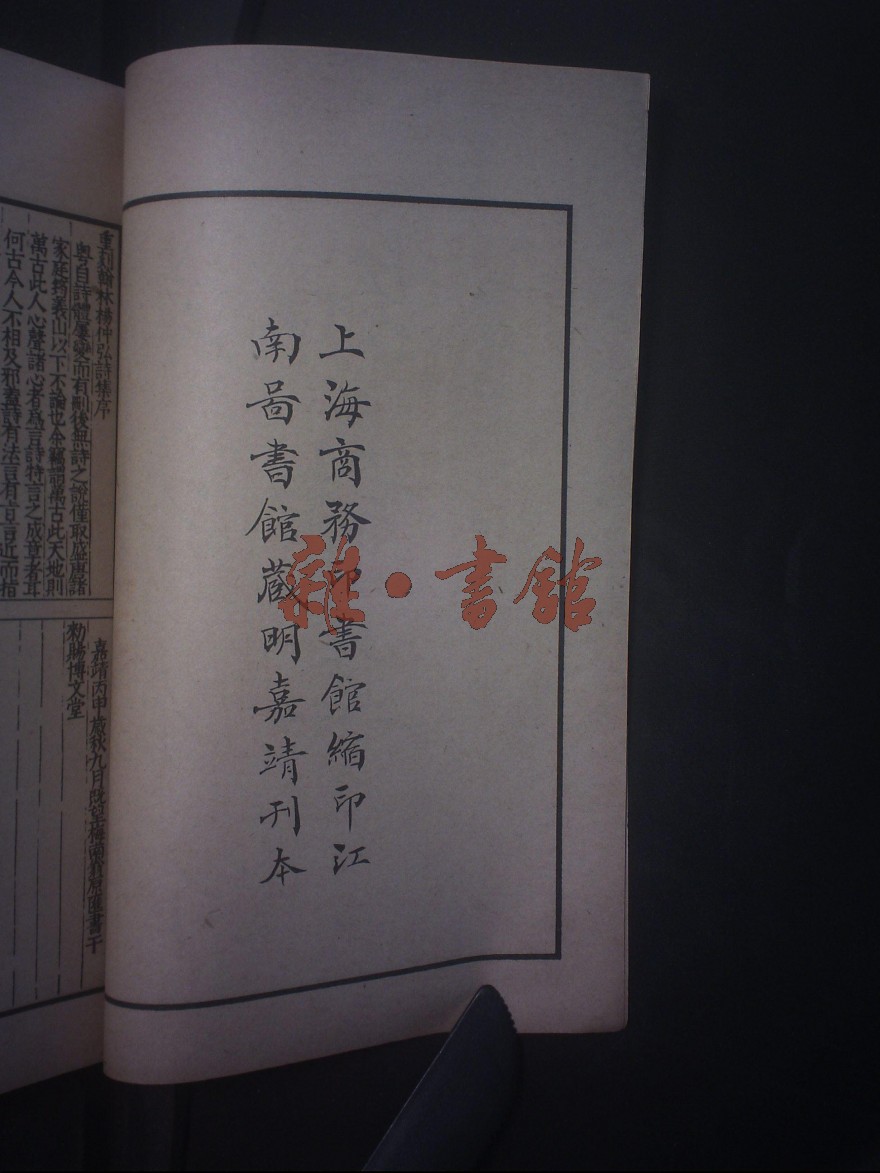 上海商務印書館縮印江
南啚書館蔵明嘉靖刊本
雜·書館
重刻翰林楊仲弘詩集序
粤自詩體屢變而有刪後無詩之證僅取盛唐諸
家庭筠義山以下不論也余竊謂萬古此天地則
萬古此人心聲諸心者為言詩特言之成章者耳
何古今人不相及邪蓋詩有法言有言近而指
嘉靖丙申歲秋九月既望梅南書屋匯書于
勑賜博文堂